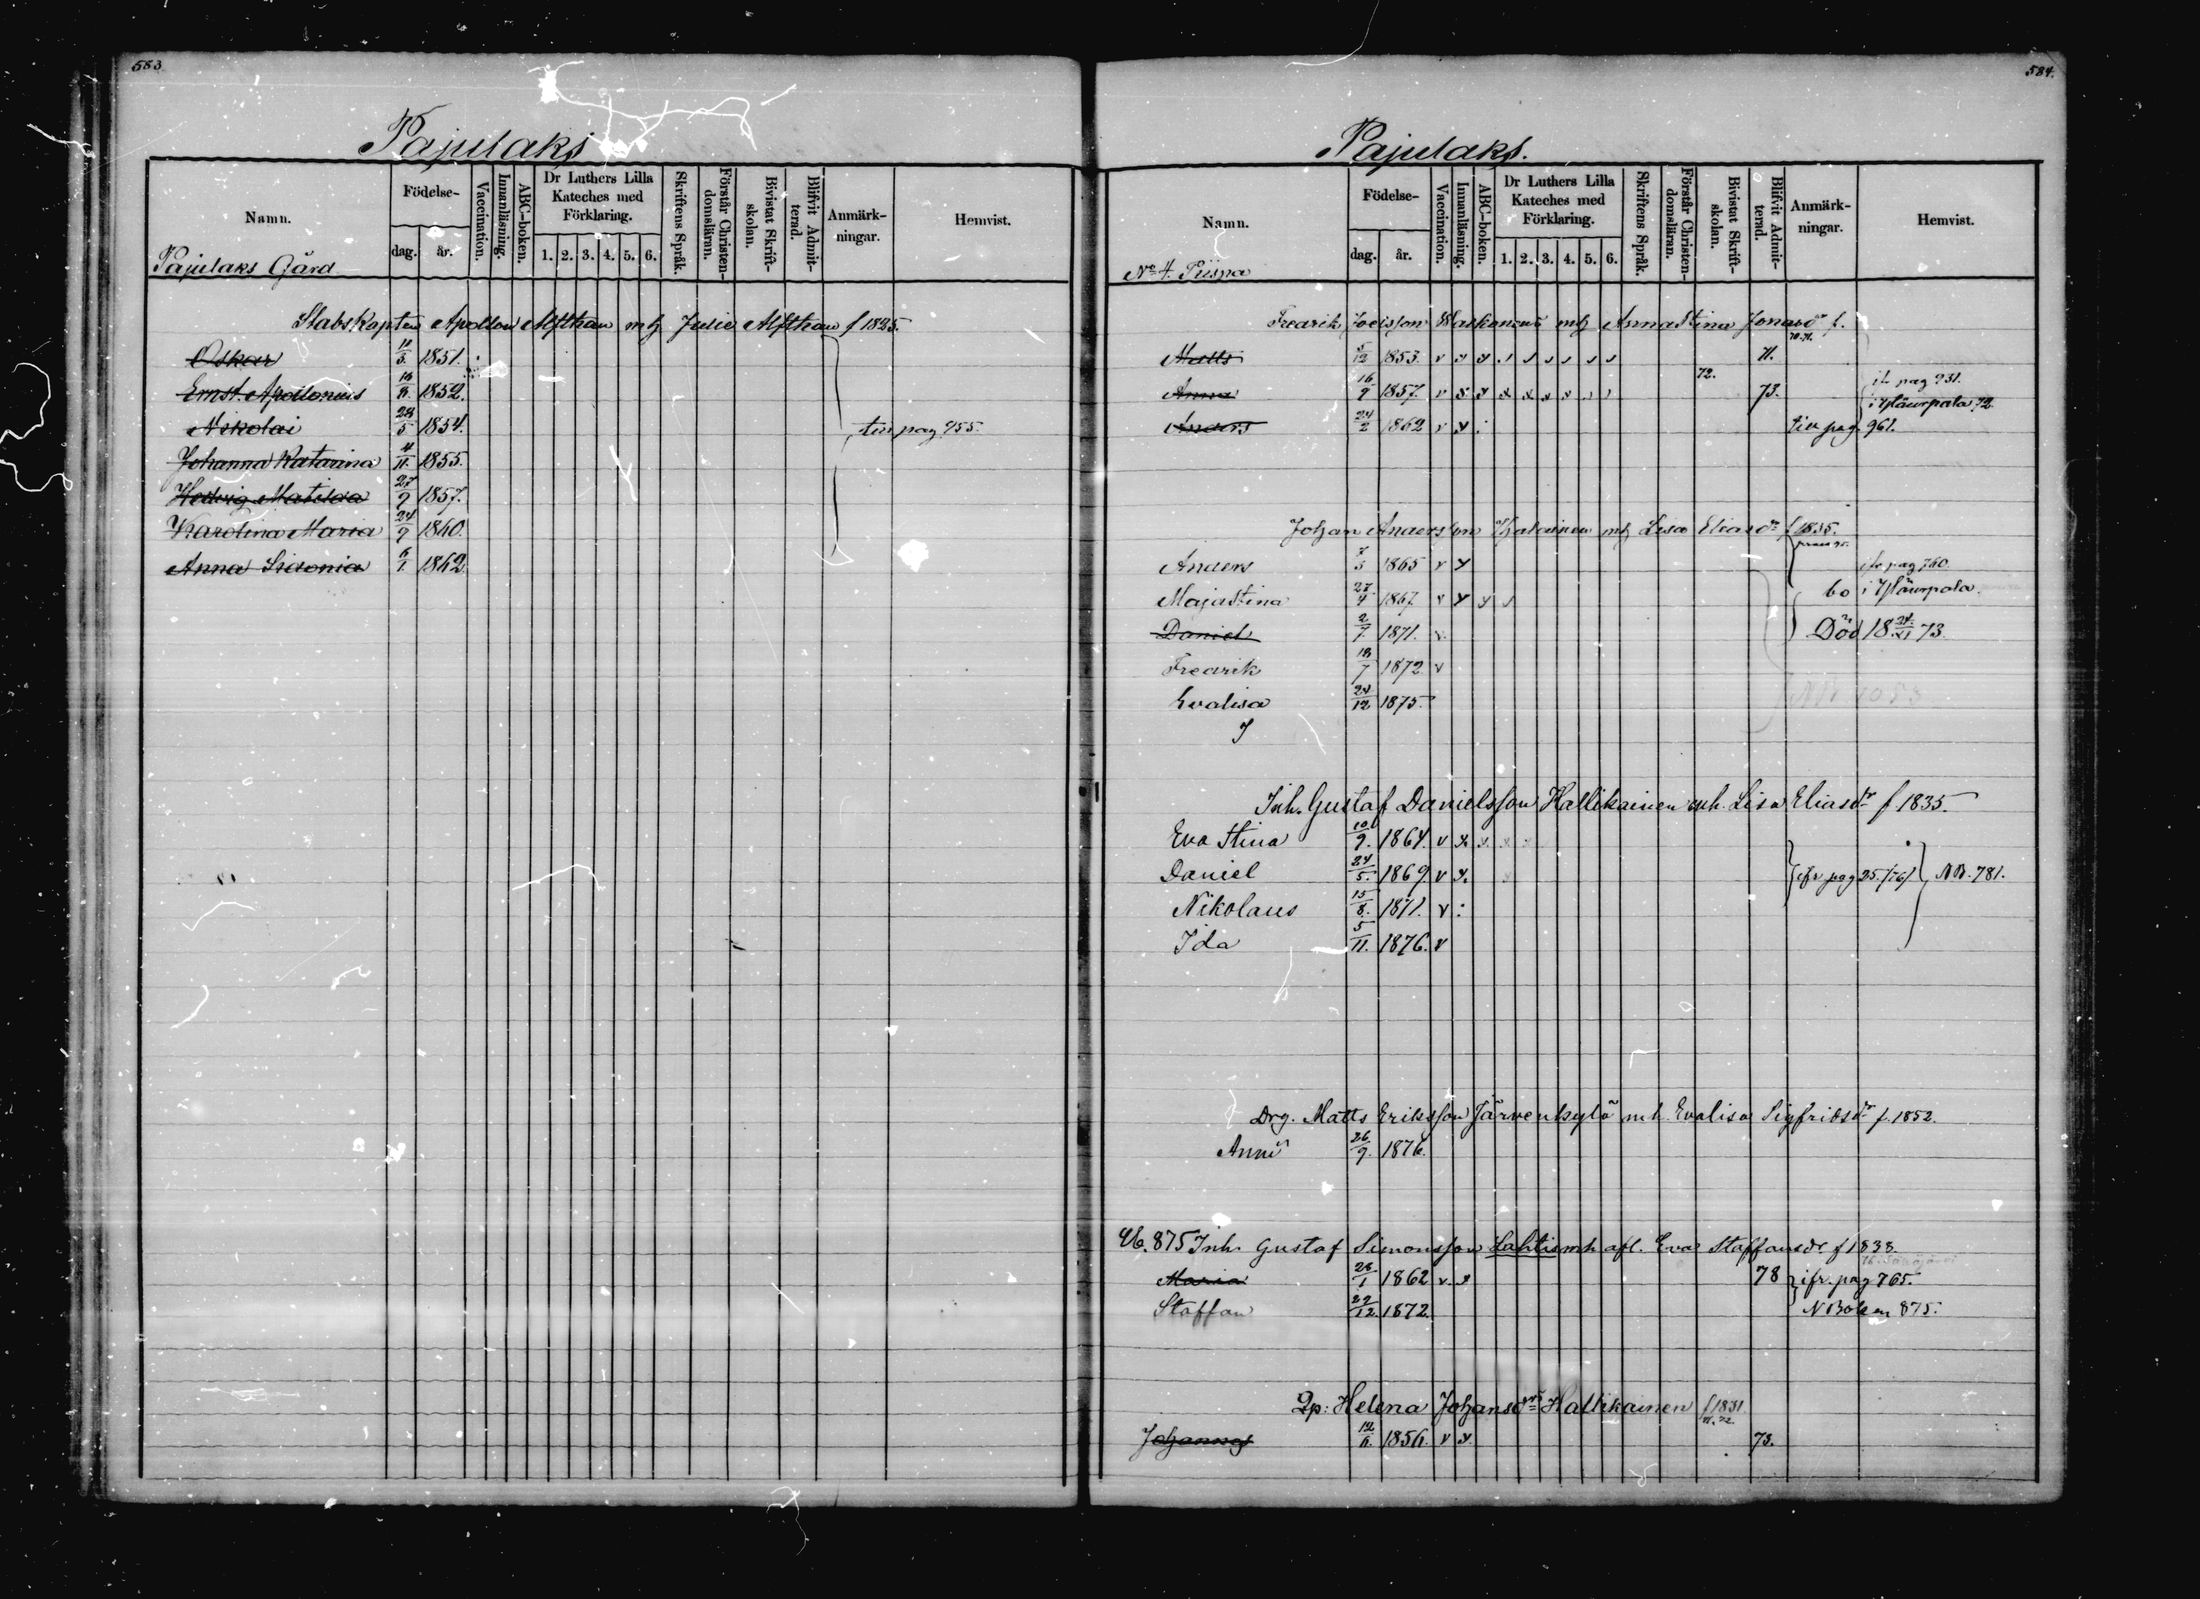 583
Pajulaks
Namn.
Födelse-
dag.
år.
Vaccination.
Innanläsning.
ABC-boken.
Dr Luthers Lilla Kateches med Förklaring.
1. 2. 3. 4. 5. 6.
Skriftens Språk.
Förstår Christen-domsläran.
Bivistat Skrift-skolan.
Blifvit Admit-terad.
Anmärk-ningar.
Hemvist.
Pajulaks Gård
Stabskapten Apollon Alfthan mh Julie Alfthan f 1825.
Oskar 1851.
Ernst Apollonius 1852.
Nikolai 28/5 1854. pag 955.
Johanna Katarina 4/11. 1855.
Hedvig Matilda 27/9 1857.
Karolina Maria 24/9 1860.
Anna Sidonia 6/1. 1862
584.
Pajulaks.
Namn.
Födelse-
dag.
år.
Vaccination.
Innanläsning.
ABC-boken.
Dr Luthers Lilla Kateches med Förklaring.
1. 2. 3. 4. 5. 6.
Skriftens Språk.
Förstår Christen-domsläran.
Bivistat Skrift-skolan.
Blifvit Admit-terad.
Anmärk-ningar.
Hemvist.
No 4. Piispa
Fredrik Mh Annastina f.
Matts 5/12 1853. v 70.71. 71.
Anna 16/9 1857. v 72. 73. pag 931.
Anders 24/2 1862 v pag. 961.
Johan Andersson mh Lisa Eliasdr f 1835.
Anders 7/3 1865 v pag 760.
Majastina 27/4 1867. v bo i
Daniel 2/7. 1871. v. Död 18 24/XI 73.
Fredrik 18/7 1872. v
Evalisa 24/12 1875.
Inh. Gustaf Danielsson Hallikainen mh. Lisa Eliasdr f. 1835.
Eva Stina 10/9. 1864. v
Daniel 24/5. 1869. v ifr pag 25. /76/ NB. 781.
Nikolaus 15/8. 1871. v
Ida 5/11. 1876. v
Drg. Matts Eriksson Järvenkylä mh. Evalisa Sigfridsdr f. 1852.
Anni 26/9. 1876.
875 Inh. Gustaf Simonsson Lahti mh afl. Eva Staffansdr f 1838.
Maria 28/1 1862 v. 78 ifr. pag 765.
Staffan 29/12. 1872. N Boken 875.
Helena Johansdr Hallikainen f 1831
Johannes 1856. v 73.